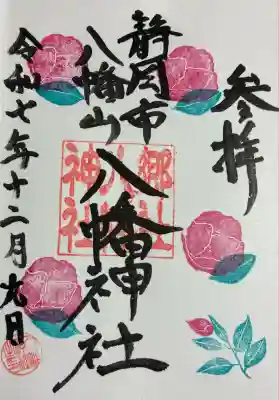 参拝
静岡市
八幡山
八幡神社
令和七年十二月九日
郷社
八幡
神社